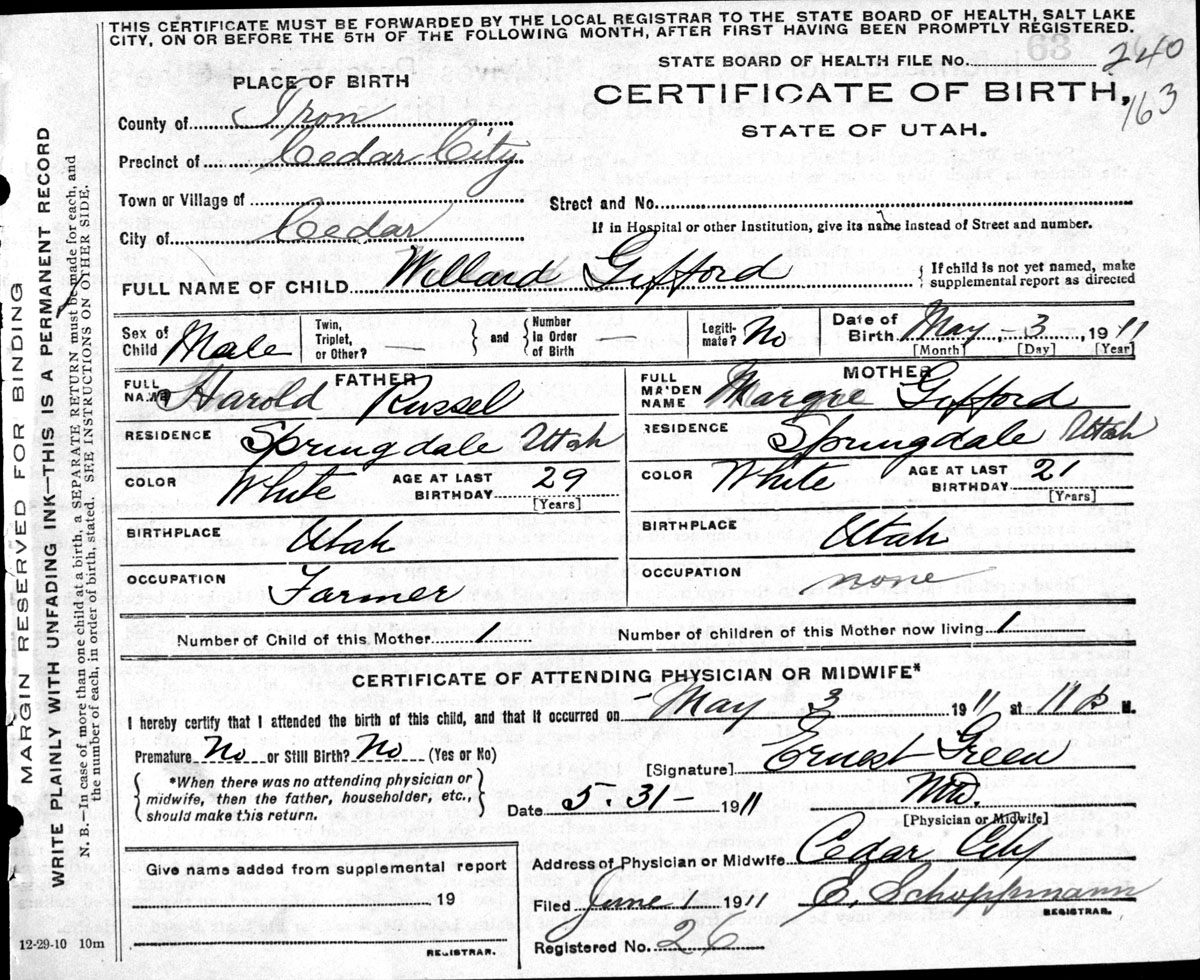 THIS CERTIFICATE MUST BE FORWARDED BY THE LOCAL REGISTRAR TO THE STATE BOARD OF HEALTH, SALT LAKE
CITY, ON OR BEFORE THE 5TH OF THE FOLLOWING MONTH, AFTER FIRST HAVING BEEN PROMPTLY REGISTERED.
STATE BOARD OF HEALTH FILE No. 240
163
PLACE OF BIRTH
CERTIFICATE OF BIRTH,
STATE OF UTAH.
County of Iron
Precinct of Cedar City
Town or Village of
Street and No.
City of Cedar
If in Hospital or other Institution, give its name instead of Street and number.
FULL NAME OF CHILD Willard Gifford { If child is not yet named, make
supplemental report as directed
Sex of Child Male Twin, Triplet, or Other? — } and { Number In Order of Birth Legiti- mate? No Date of Birth May - 3, 1911
[Month] [Day] [Year]
FATHER MOTHER
FULL NAME Harold Russel FULL MAIDEN NAME Margie Gifford
RESIDENCE Springdale Utah RESIDENCE Springdale Utah
COLOR White AGE AT LAST BIRTHDAY 29 [Years] COLOR White AGE AT LAST BIRTHDAY 21 [Years]
BIRTHPLACE Utah BIRTHPLACE Utah
OCCUPATION Farmer OCCUPATION none
Number of Child of this Mother 1 Number of children of this Mother now living 1
CERTIFICATE OF ATTENDING PHYSICIAN OR MIDWIFE*
I hereby certify that I attended the birth of this child, and that it occurred on May 3 1911 at 11 P M.
Premature No or Still Birth? No (Yes or No)
[Signature] Ernest Green
{ *When there was no attending physician or
midwife, then the father, householder, etc.,
should make this return. }
Date 5-31- 1911 MD.
[Physician or Midwife]
Give name added from supplemental report
19
REGISTRAR.
Address of Physician or Midwife Cedar City
Filed June 1 1911 E. Schoppmann
REGISTRAR.
Registered No. 26
12-29-10 10m
MARGIN RESERVED FOR BINDING
WRITE PLAINLY WITH UNFADING INK—THIS IS A PERMANENT RECORD
N. B.—In case of more than one child at a birth, a SEPARATE RETURN must be made for each, and
the number of each, in order of birth, stated. SEE INSTRUCTIONS ON OTHER SIDE.